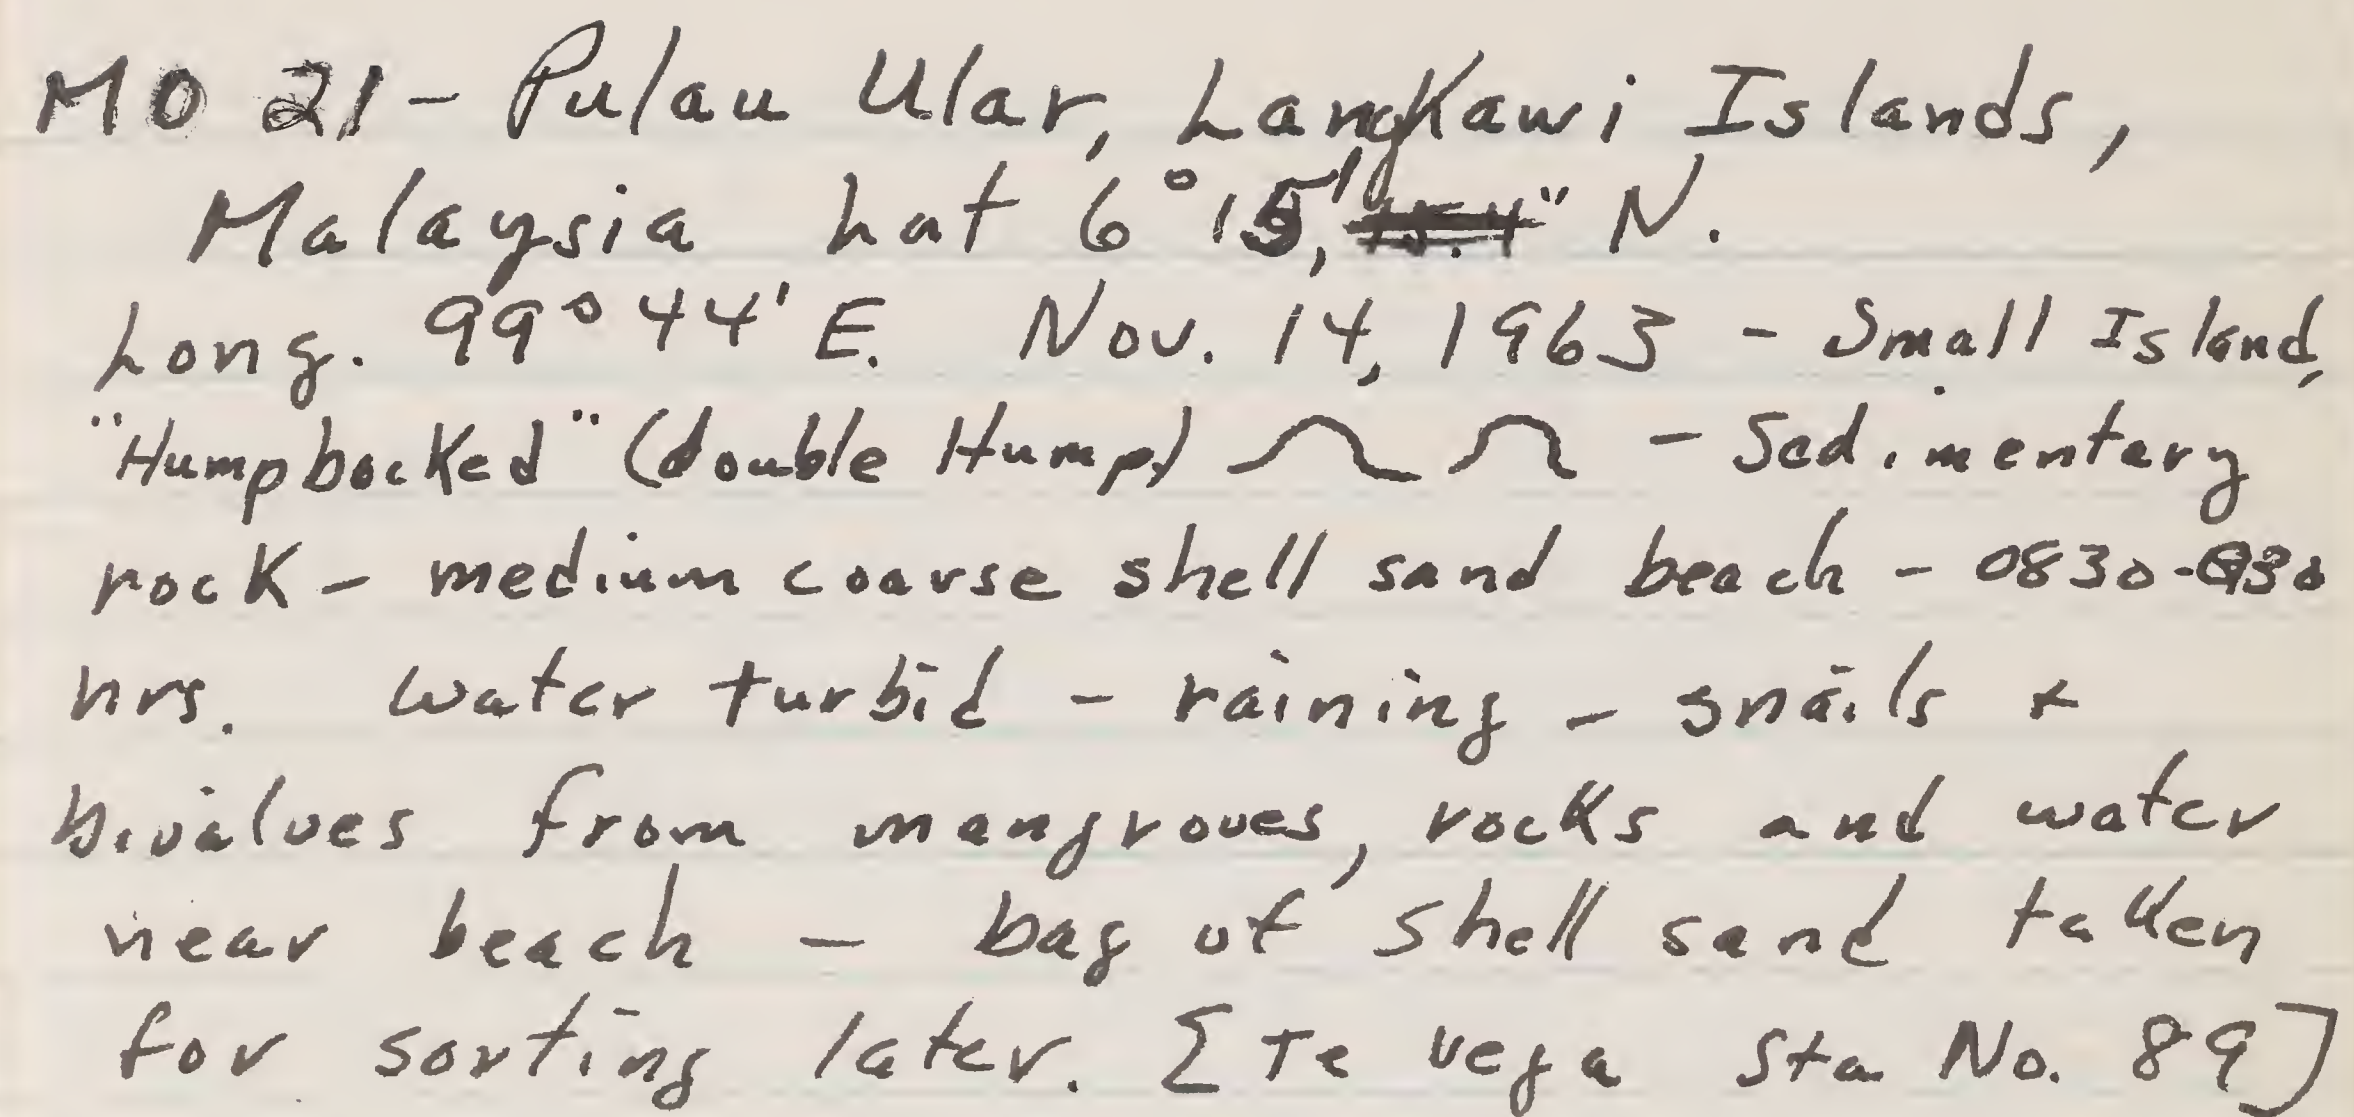 MO 21 - Pulau Ular, Langkawi Islands,
Malaysia Lat 6°15', " N.
Long. 99°44' E. Nov. 14, 1963 - Small Island,
"Humpbacked" (double Hump) - Sedimentary
rock - medium coarse shell sand beach - 0830-930
hrs. water turbid - raining - snails +
bivalves from mangroves, rocks and water
near beach - bag of shell sand taken
for sorting later. [Te Vega Sta No. 89]